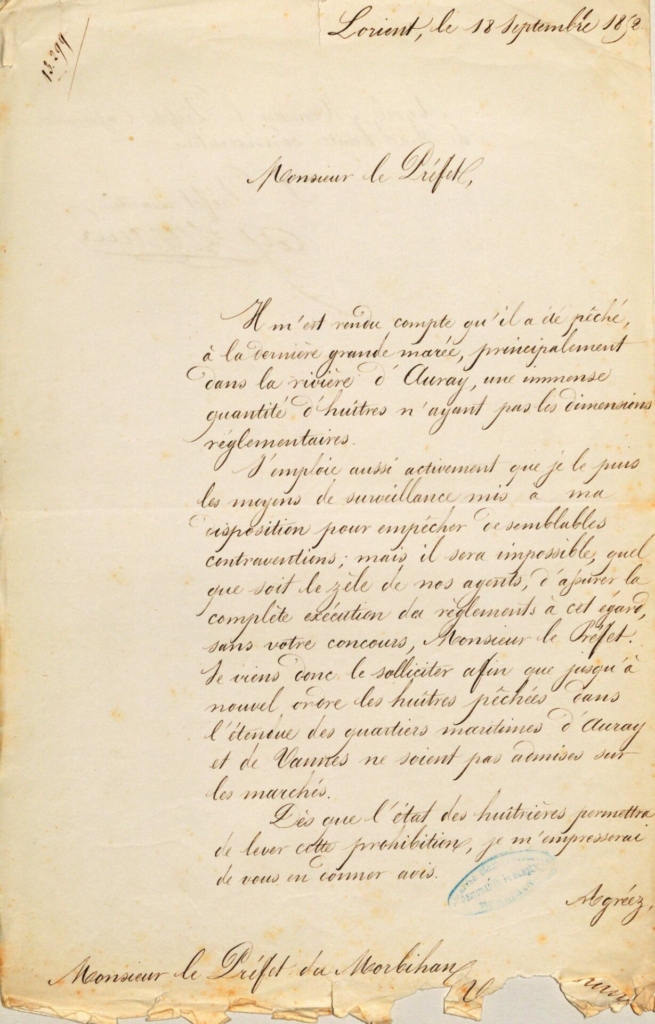 13.299
Lorient, le 18 Septembre 185
Monsieur le Préfet,
Il m'est rendu compte qu'il a été pêché,
à la dernière grande marée, principalement
dans la rivière d'Auray, une immense
quantité d'huîtres n'ayant pas les dimensions
réglementaires.
J'emploie aussi activement que je le puis
les moyens de surveillance mis à ma
disposition pour empêcher de semblables
contraventions; mais il sera impossible, quel
que soit le zèle de nos agents, d'assurer la
complète exécution des règlements à cet égard,
sans votre concours, Monsieur le Préfet.
Je viens donc le solliciter afin que jusqu'à
nouvel ordre les huîtres pêchées dans
l'étendue des quartiers maritimes d'Auray
et de Vannes ne soient pas admises sur
les marchés.
Dès que l'état des huîtrières permettra
de lever cette prohibition, je m'empresserai
de vous en donner avis.
Agréez,
Monsieur le Préfet du Morbihan